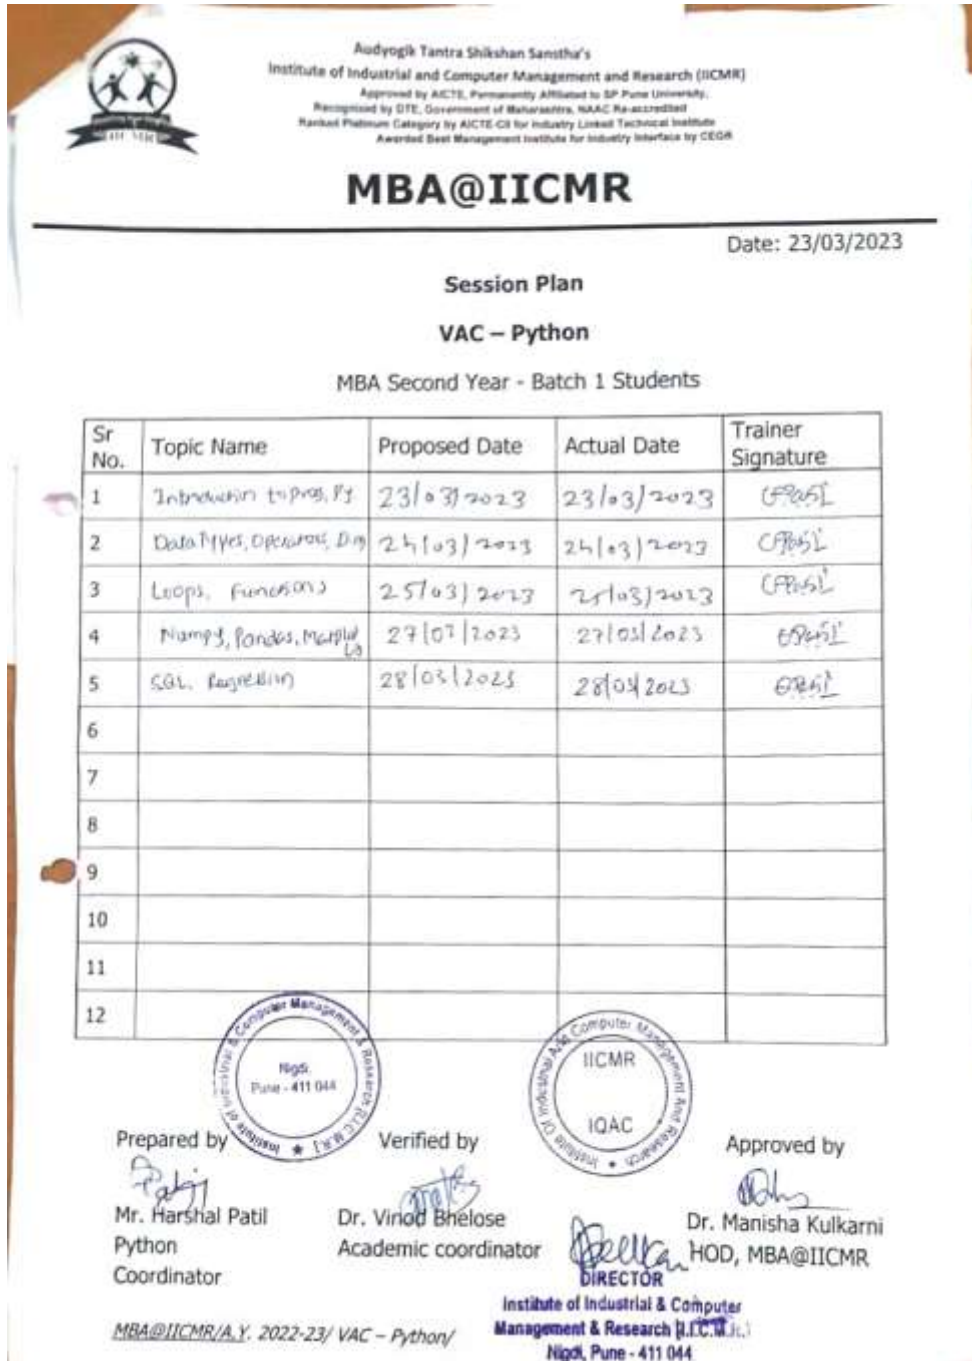 Audyogik Tantra Shikshan Sanstha's
Institute of Industrial and Computer Management and Research (IICMR)
Approved by AICTE, Permanently Affiliated to SP Pune University,
Recognized by DTE, Government of Maharashtra, NAAC Re-accredited
Ranked Platinum Category by AICTE-CII for Industry Linked Technical Institute
Awarded Best Management Institute for Industry Interface by CEGR
MBA@IICMR
Date: 23/03/2023
Session Plan
VAC – Python
MBA Second Year - Batch 1 Students
Sr No. Topic Name Proposed Date Actual Date Trainer Signature
1 Introduction to Prog, Py 23/03/2023 23/03/2023
2 Data Types, Operators, 24/03/2023 24/03/2023
3 Loops, Functions 25/03/2023 25/03/2023
4 Numpy, Pandas, 27/03/2023 27/03/2023
5 SQL, Regression 28/03/2023 28/03/2023
6
7
8
9
10
11
12
Institute of Industrial & Computer Management & Research [I.I.C.M.R.]
Nigdi,
Pune - 411 044
Institute Of Industrial And Computer Management And Research
IICMR
IQAC
Prepared by Verified by Approved by
Mr. Harshal Patil Dr. Vinod Bhelose Dr. Manisha Kulkarni
Python Academic coordinator HOD, MBA@IICMR
Coordinator
DIRECTOR
Institute of Industrial & Computer
Management & Research [I.I.C.M.R.]
Nigdi, Pune - 411 044
MBA@IICMR/A.Y. 2022-23/ VAC – Python/